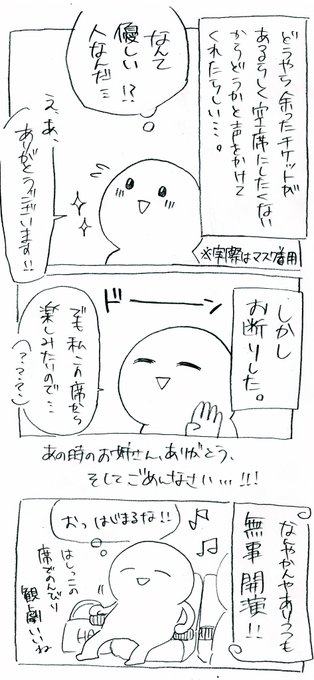 どうやら余ったチケットが
あるらしく空席にしたくない
からどうかと声をかけて
くれたらしい…。
※実際はマスク着用
なんて
優しい!?
人なんだ…
え、あ、
ありがとうございます!!
しかし
お断りした。
ドーーーン
でも私この席から
楽しみたいので…
(？？？？)
あの時のお姉さん、ありがとう、
そしてごめんなさい…!!!
なんやかんやありつつも
無事開演!!
おっはじまるな!!
はしっこの
席でのんびり
観劇いいね